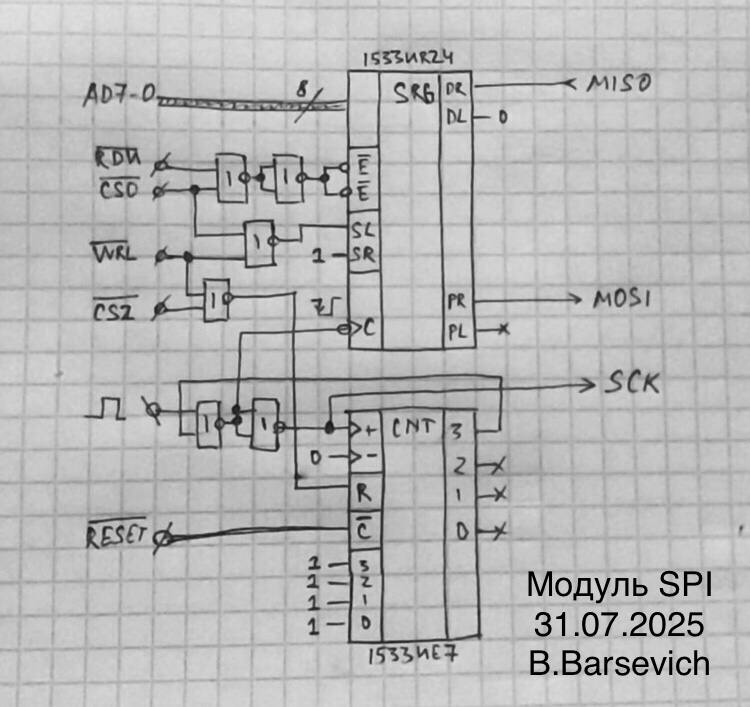 1533ИR24
AD7-0
8
SRG
DR
MISO
DL
0
RDИ
CS0
1
1
E
E
SL
WRL
1
1
SR
CS2
1
7
PR
MOSI
C
PL
SCK
1
1
+
CNT
3
0
-
2
R
1
RESET
C
0
1
3
1
2
1
1
1
0
1533ИЕ7
Модуль SPI
31.07.2025
B.Barsevich